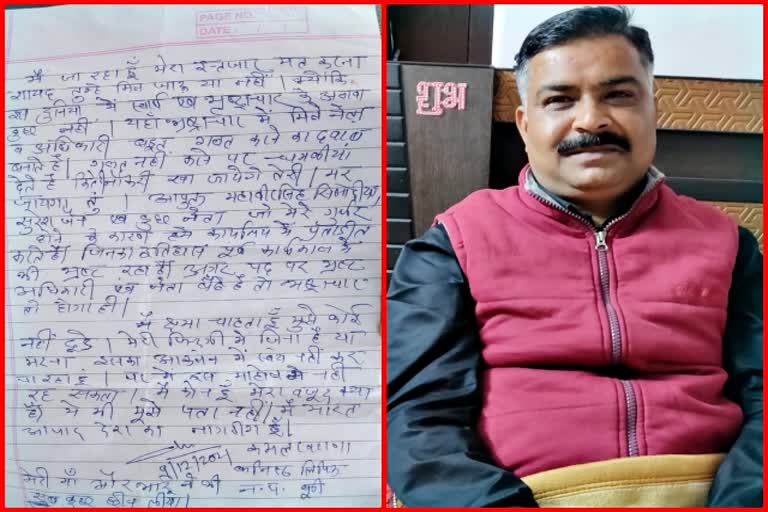 PAGE NO.
DATE: / /
मैं जा रहा हूँ मेरा इन्तजार मत करना
शायद तुम्हे मिल जाऊ या नहीं। क्योंकि
इस दुनिया में स्वार्थ एवं भ्रष्टाचार के अलावा
कुछ नहीं। यहाँ भ्रष्टाचार में मिले नेता
व अधिकारी बहुत गलत काम का दबाव
बनाते हैं। गलत नहीं करने पर धमकीयां
देते हैं खा जायेंगे तेरी। मर
जायेगा तूं। आयुक्त महावीर सिंह सिसोदिया,
सुरेश जैन एवं कुछ नेता जो मेरे गफर
होने के कारण इस कार्यालय में प्रताड़ीत
करते है। जिनका इतिहास पूर्व कार्यकाल में
भी भ्रष्ट रहा है। अगर पद पर भ्रष्ट
अधिकारी एवं नेता बैठे है तो भ्रष्टाचार
तो होगा ही।
मैं क्षमा चाहता हूँ मुझे कोई
नहीं ढूंढे। मेरी जिन्दगी में जिना है या
मरना इसका आकलन में स्वयं नहीं कर
पा रहा हूँ। पर में इस माहोल में नहीं
रह सकता। मैं कौन हूँ मेरा वजूद क्या
है ये भी मुझे पता नहीं। मैं भारत
आजाद देश का नागरीग हूँ।
कमलेश
कनिष्ठ लिपिक
मेरी माँ और भाई ने भी न.प. बूंदी
सब कुछ छीन लीया।
शुभ